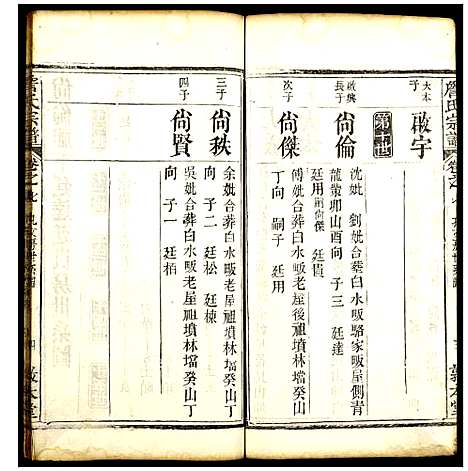 大本
子
啟宇
第十世
啟興
長子
尙倫
沈妣劉妣合塟白水畈駱家畈屋側青
龍嘴卯山酉向子三廷達
廷用嗣尙傑廷貴
次子
尙傑
傅妣合葬白水畈老屋後祖墳林壋癸山
丁向嗣子廷用
三子
尙秩
余妣合葬白水畈老屋祖墳林壋癸山丁
向子二廷松廷棟
四子
尙賢
吳妣合葬白水畈老屋祖墳林壋癸山丁
向子一廷栢
氏宗譜
卷之七
敦本堂